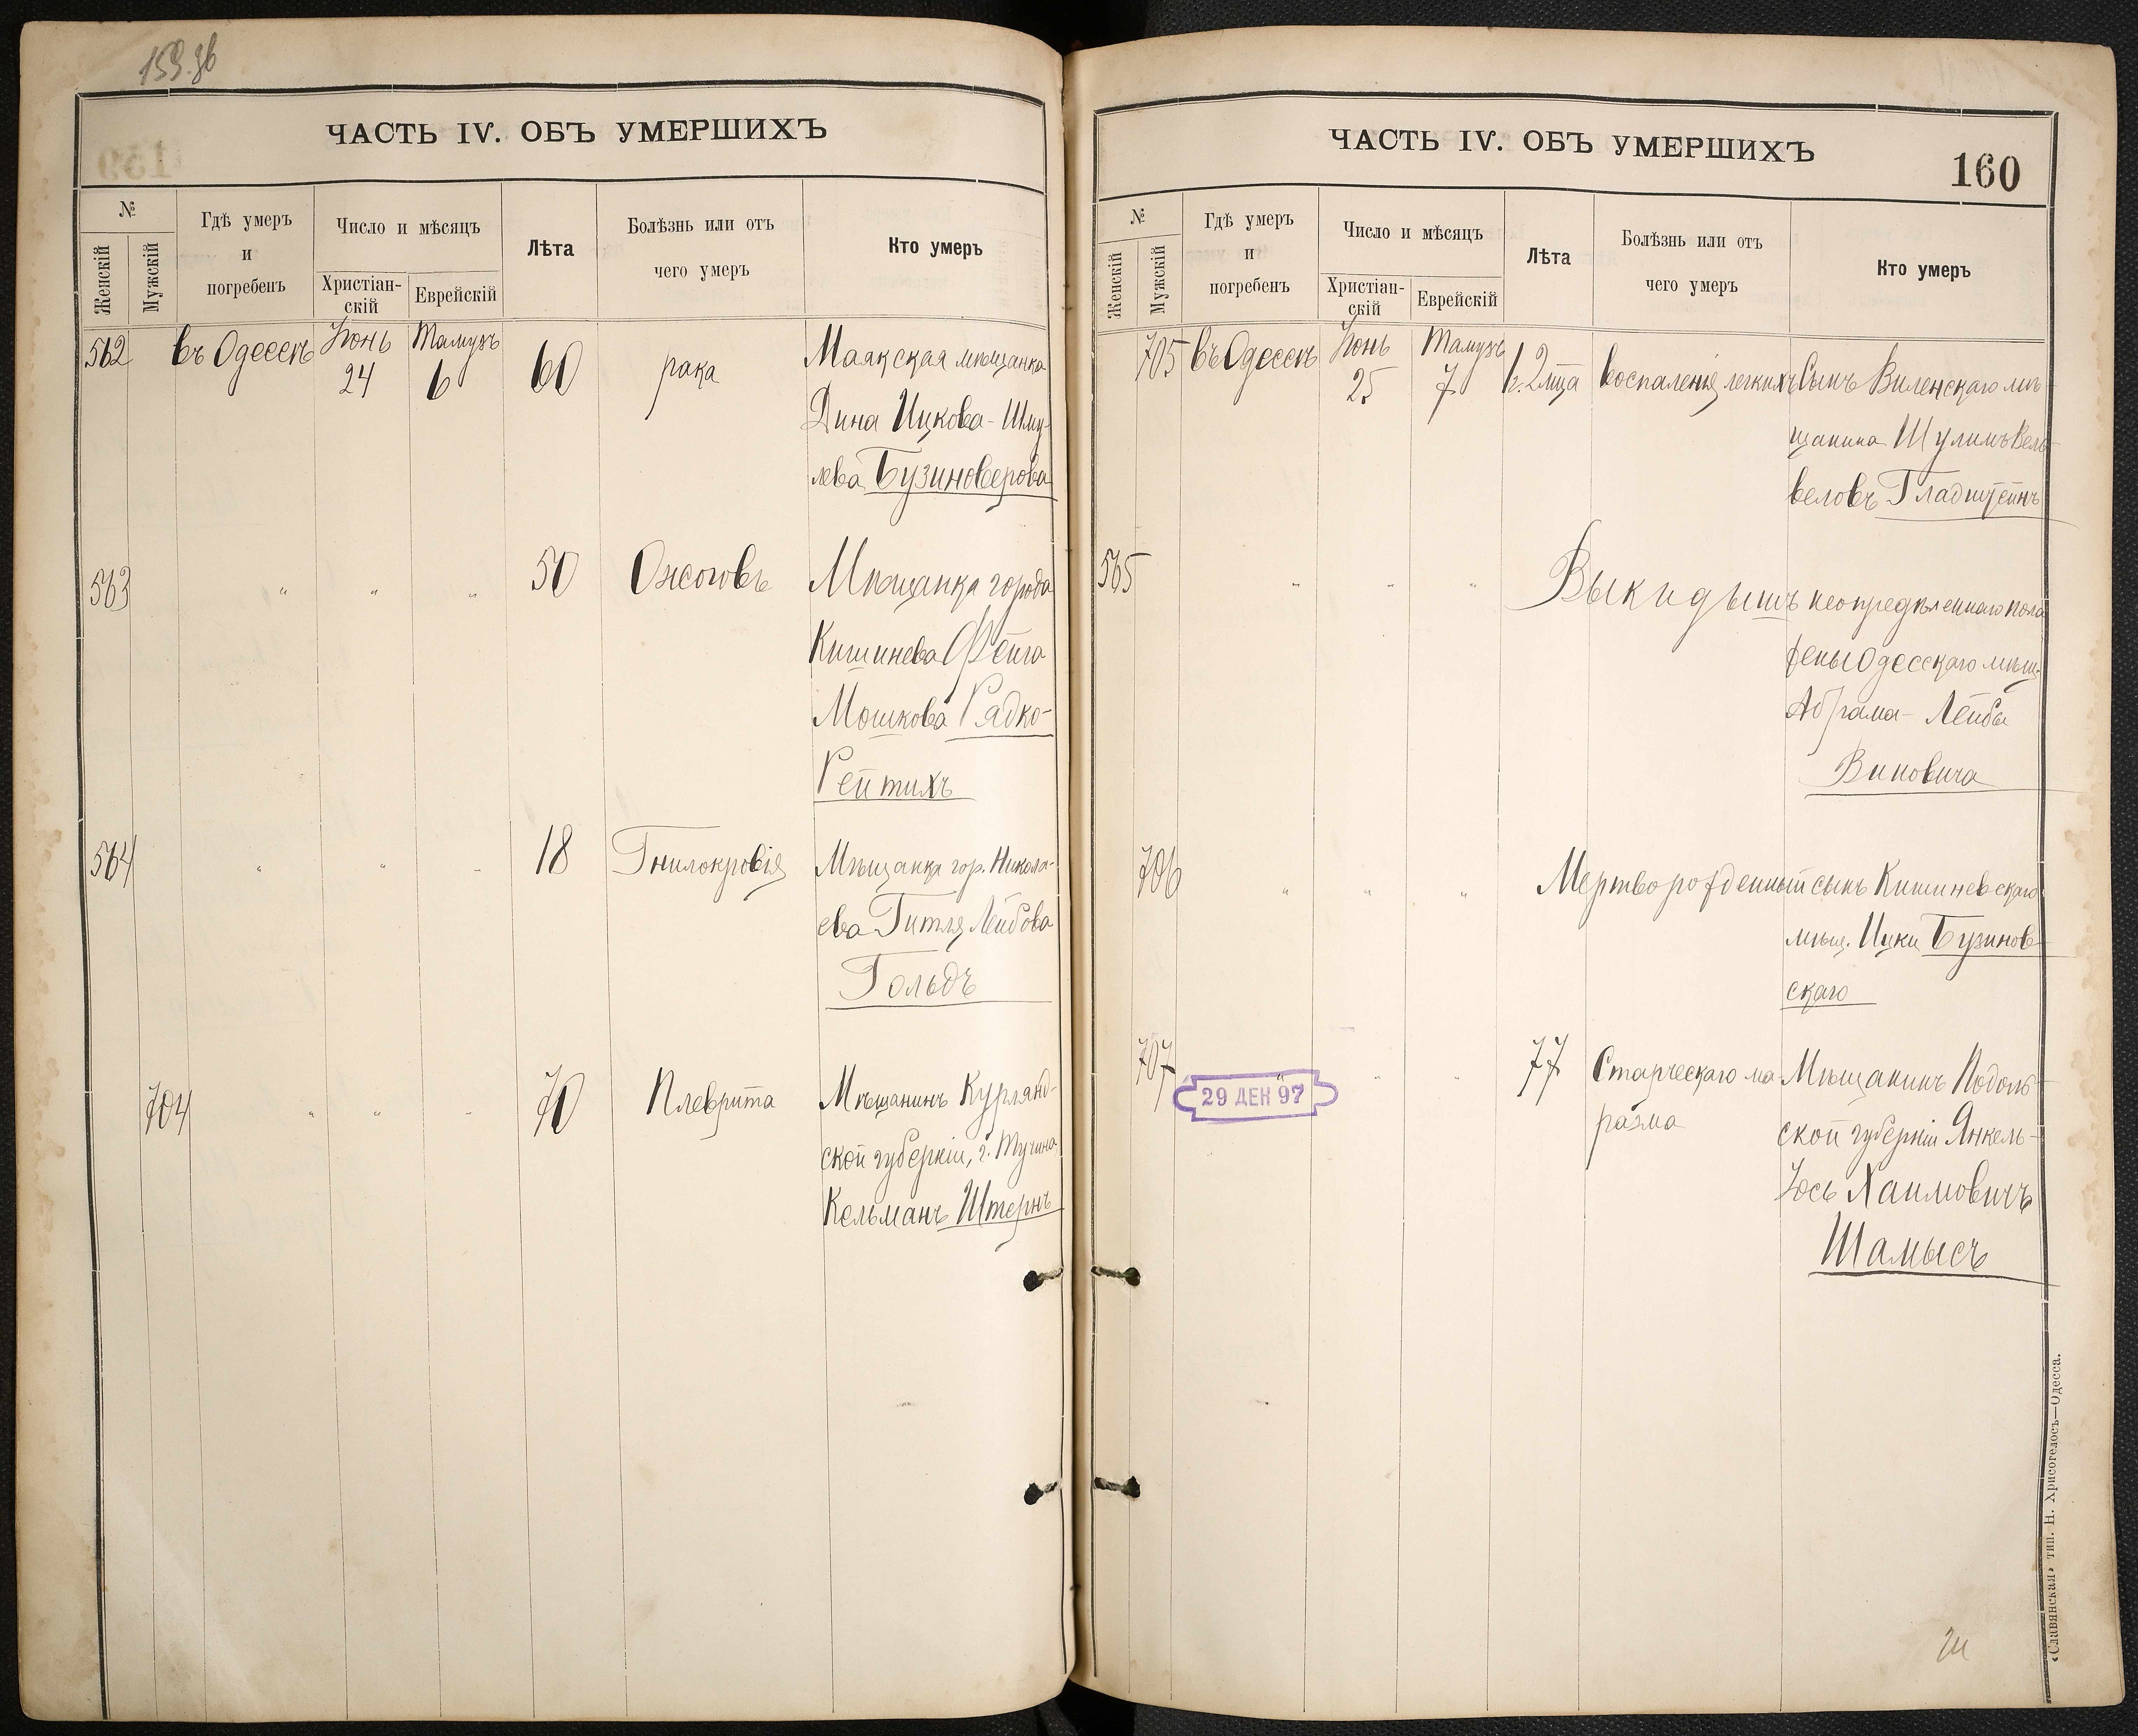 159 об
ЧАСТЬ IV. ОБЪ УМЕРШИХЪ
№
Женскій
Мужскій
Гдѣ умеръ
и
погребенъ
Число и мѣсяцъ
Христіан-
скій
Еврейскій
Лѣта
Болѣзнь или отъ
чего умеръ
Кто умеръ
562 въ Одессѣ Іюнь 24 Тамузъ 6 60 рака Маякская мѣщанка
Дина Ицкова-Шму-
лева Бузиноверова
563 " " " 50 Ожоговъ Мѣщанка города
Кишинева Фейга
Мошкова Радко-
Рейтихъ
564 " " " 18 Гнилокровія Мѣщанка гор. Никола-
ева Гитля Лейбова
Гольдъ
704 " " " 70 Плеврита Мѣщанинъ Курлянд-
ской губерніи, г.
Кельманъ Штернъ
ЧАСТЬ IV. ОБЪ УМЕРШИХЪ
160
№
Женскій
Мужскій
Гдѣ умеръ
и
погребенъ
Число и мѣсяцъ
Христіан-
скій
Еврейскій
Лѣта
Болѣзнь или отъ
чего умеръ
Кто умеръ
705 въ Одессѣ Іюнь 25 Тамузъ 7 1. 2 мца воспаленія легкихъ Сынъ Виленскаго мѣ-
щанина Шулимъ Вель-
веловъ Гладштейнъ
565 " " " Выкидышъ неопредѣленнаго пола
жены Одесскаго мѣщ.
Абрама-Лейбы
Виновича
706 " " " Мертворожденный сынъ Кишиневскаго
мѣщ. Ицки Бузинов-
скаго
707 " " " 77 Старческаго ма- Мѣщанинъ Подоль-
разма ской губерніи Янкель-
Іось Хаимовичъ
Шамысъ
29 ДЕК 97
«Славянская» тип. Н. Хрисогелосъ—Одесса.